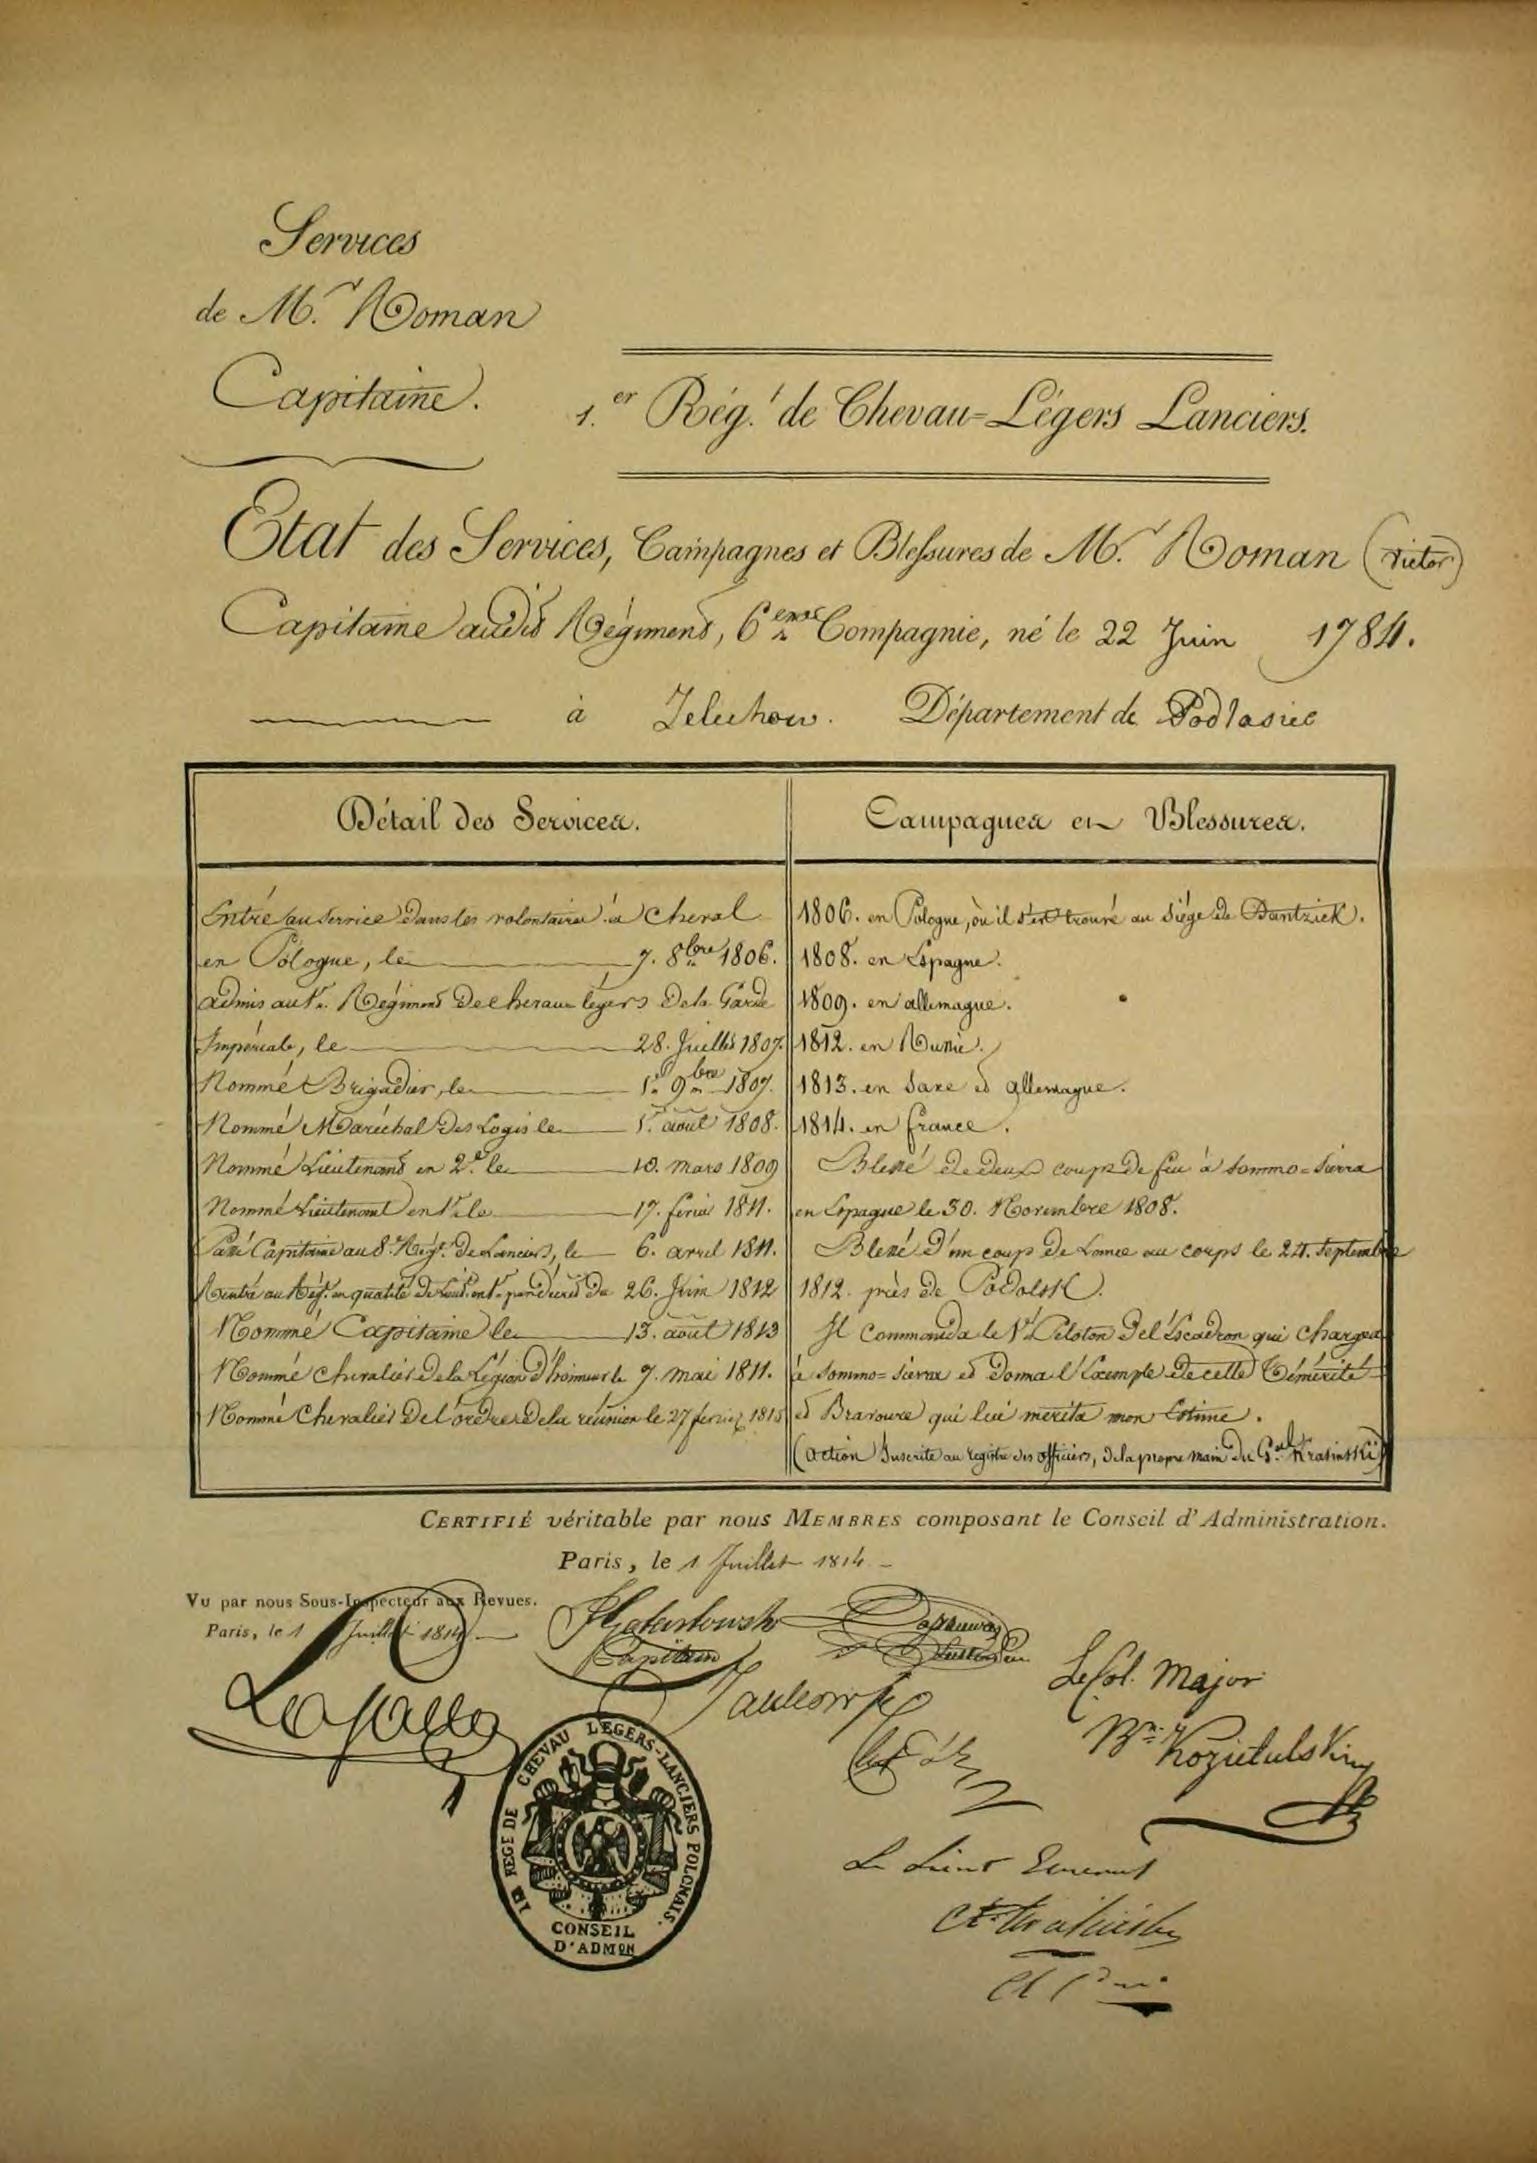 Services
de M.r Roman
Capitaine.
1.er Rég.t de Chevau=Légers Lanciers.
Etat des Services, Campagnes et Blessures de M.r Roman (victor)
Capitaine audit Régiment, 6.eme Compagnie, né le 22 Juin 1784.
à Zelechow. Département de Podlasie
Détail des Services.
Entré au Service dans les volontaires à cheval
en Pologne, le 7. 8bre 1806.
admis au 1r. Régiment de chevau légers de la Garde
Impériale, le 28. Juillet 1807.
Nommé Brigadier, le 1r 9bre 1807.
Nommé Maréchal des Logis le 1r. août 1808.
Nommé Lieutenant en 2.d le 10. mars 1809
Nommé Lieutenant en 1r. le 17. fevrier 1811.
Passé Capitaine au 8. Régt. de Lanciers, le 6. avril 1811.
Rentré au Régt. en qualité de Lieut. en 1r. par décret du 26. Juin 1812
Nommé Capitaine le 13. août 1813
Nommé chevalier de la Légion d'honneur le 7. mai 1811.
Nommé Chevalier de l'ordre de la réunion le 27 fevrier 1813
Campagnes et Blessures.
1806. en Pologne, où il s'est trouvé au Siége de Dantzick.
1808. en Espagne.
1809. en allemagne.
1812. en Russie.
1813. en Saxe et allemagne.
1814. en france.
Blessé de deux coups de feu à Sommo=Sierra
en Espagne le 30. Novembre 1808.
Blessé d'un coup de Lance au corps le 24. septembre
1812. près de Podolsk.
Il commanda le 1r. Peloton de l'Escadron qui chargea
à Sommo=Sierra et donna l'Exemple de cette Témérité
et Bravoure qui lui mérita mon Estime.
(action Inscrite au registre des officiers, de la propre main du G.al Krasinski)
CERTIFIÉ véritable par nous MEMBRES composant le Conseil d'Administration.
Paris, le 1 Juillet 1814
Vu par nous Sous-Inspecteur aux Revues.
Paris, le 1 Juillet 1814
Capitain
Le Col. Major
Bn. Kozietulski
Le Lieut General
1ER REGT DE CHEVAU LEGERS-LANCIERS POLONAIS.
CONSEIL
D'ADMON